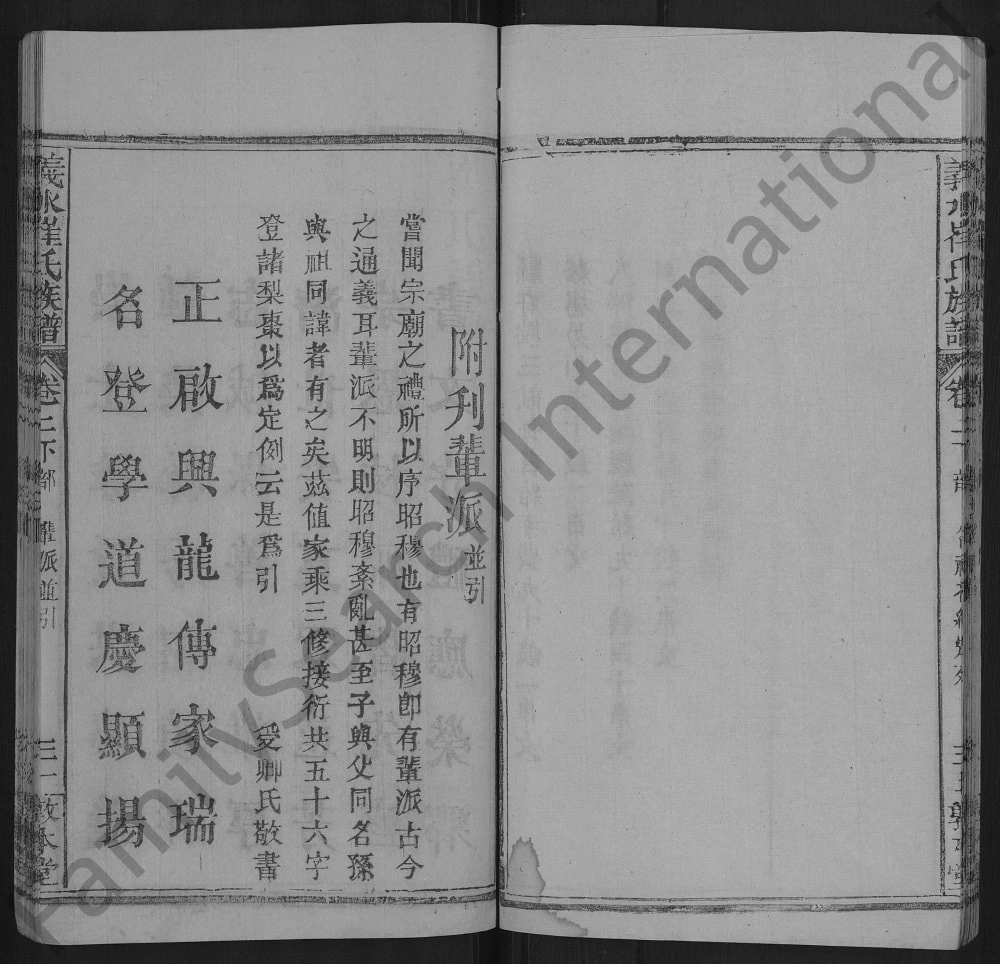 附刋輩派並引
嘗聞宗廟之禮所以序昭穆也有昭穆卽有輩派古今
之通義耳輩派不明則昭穆紊亂甚至子與父同名孫
與祖同諱者有之矣茲值家乘三修接衍共五十六字
登諸梨棗以爲定例云是爲引
爰卿氏敬書
正啟興龍傳家瑞
名登學道慶顯揚
義水崔氏族譜
卷二下部
輩派並引
三一敦本堂
義水崔氏族譜
FamilySearch International